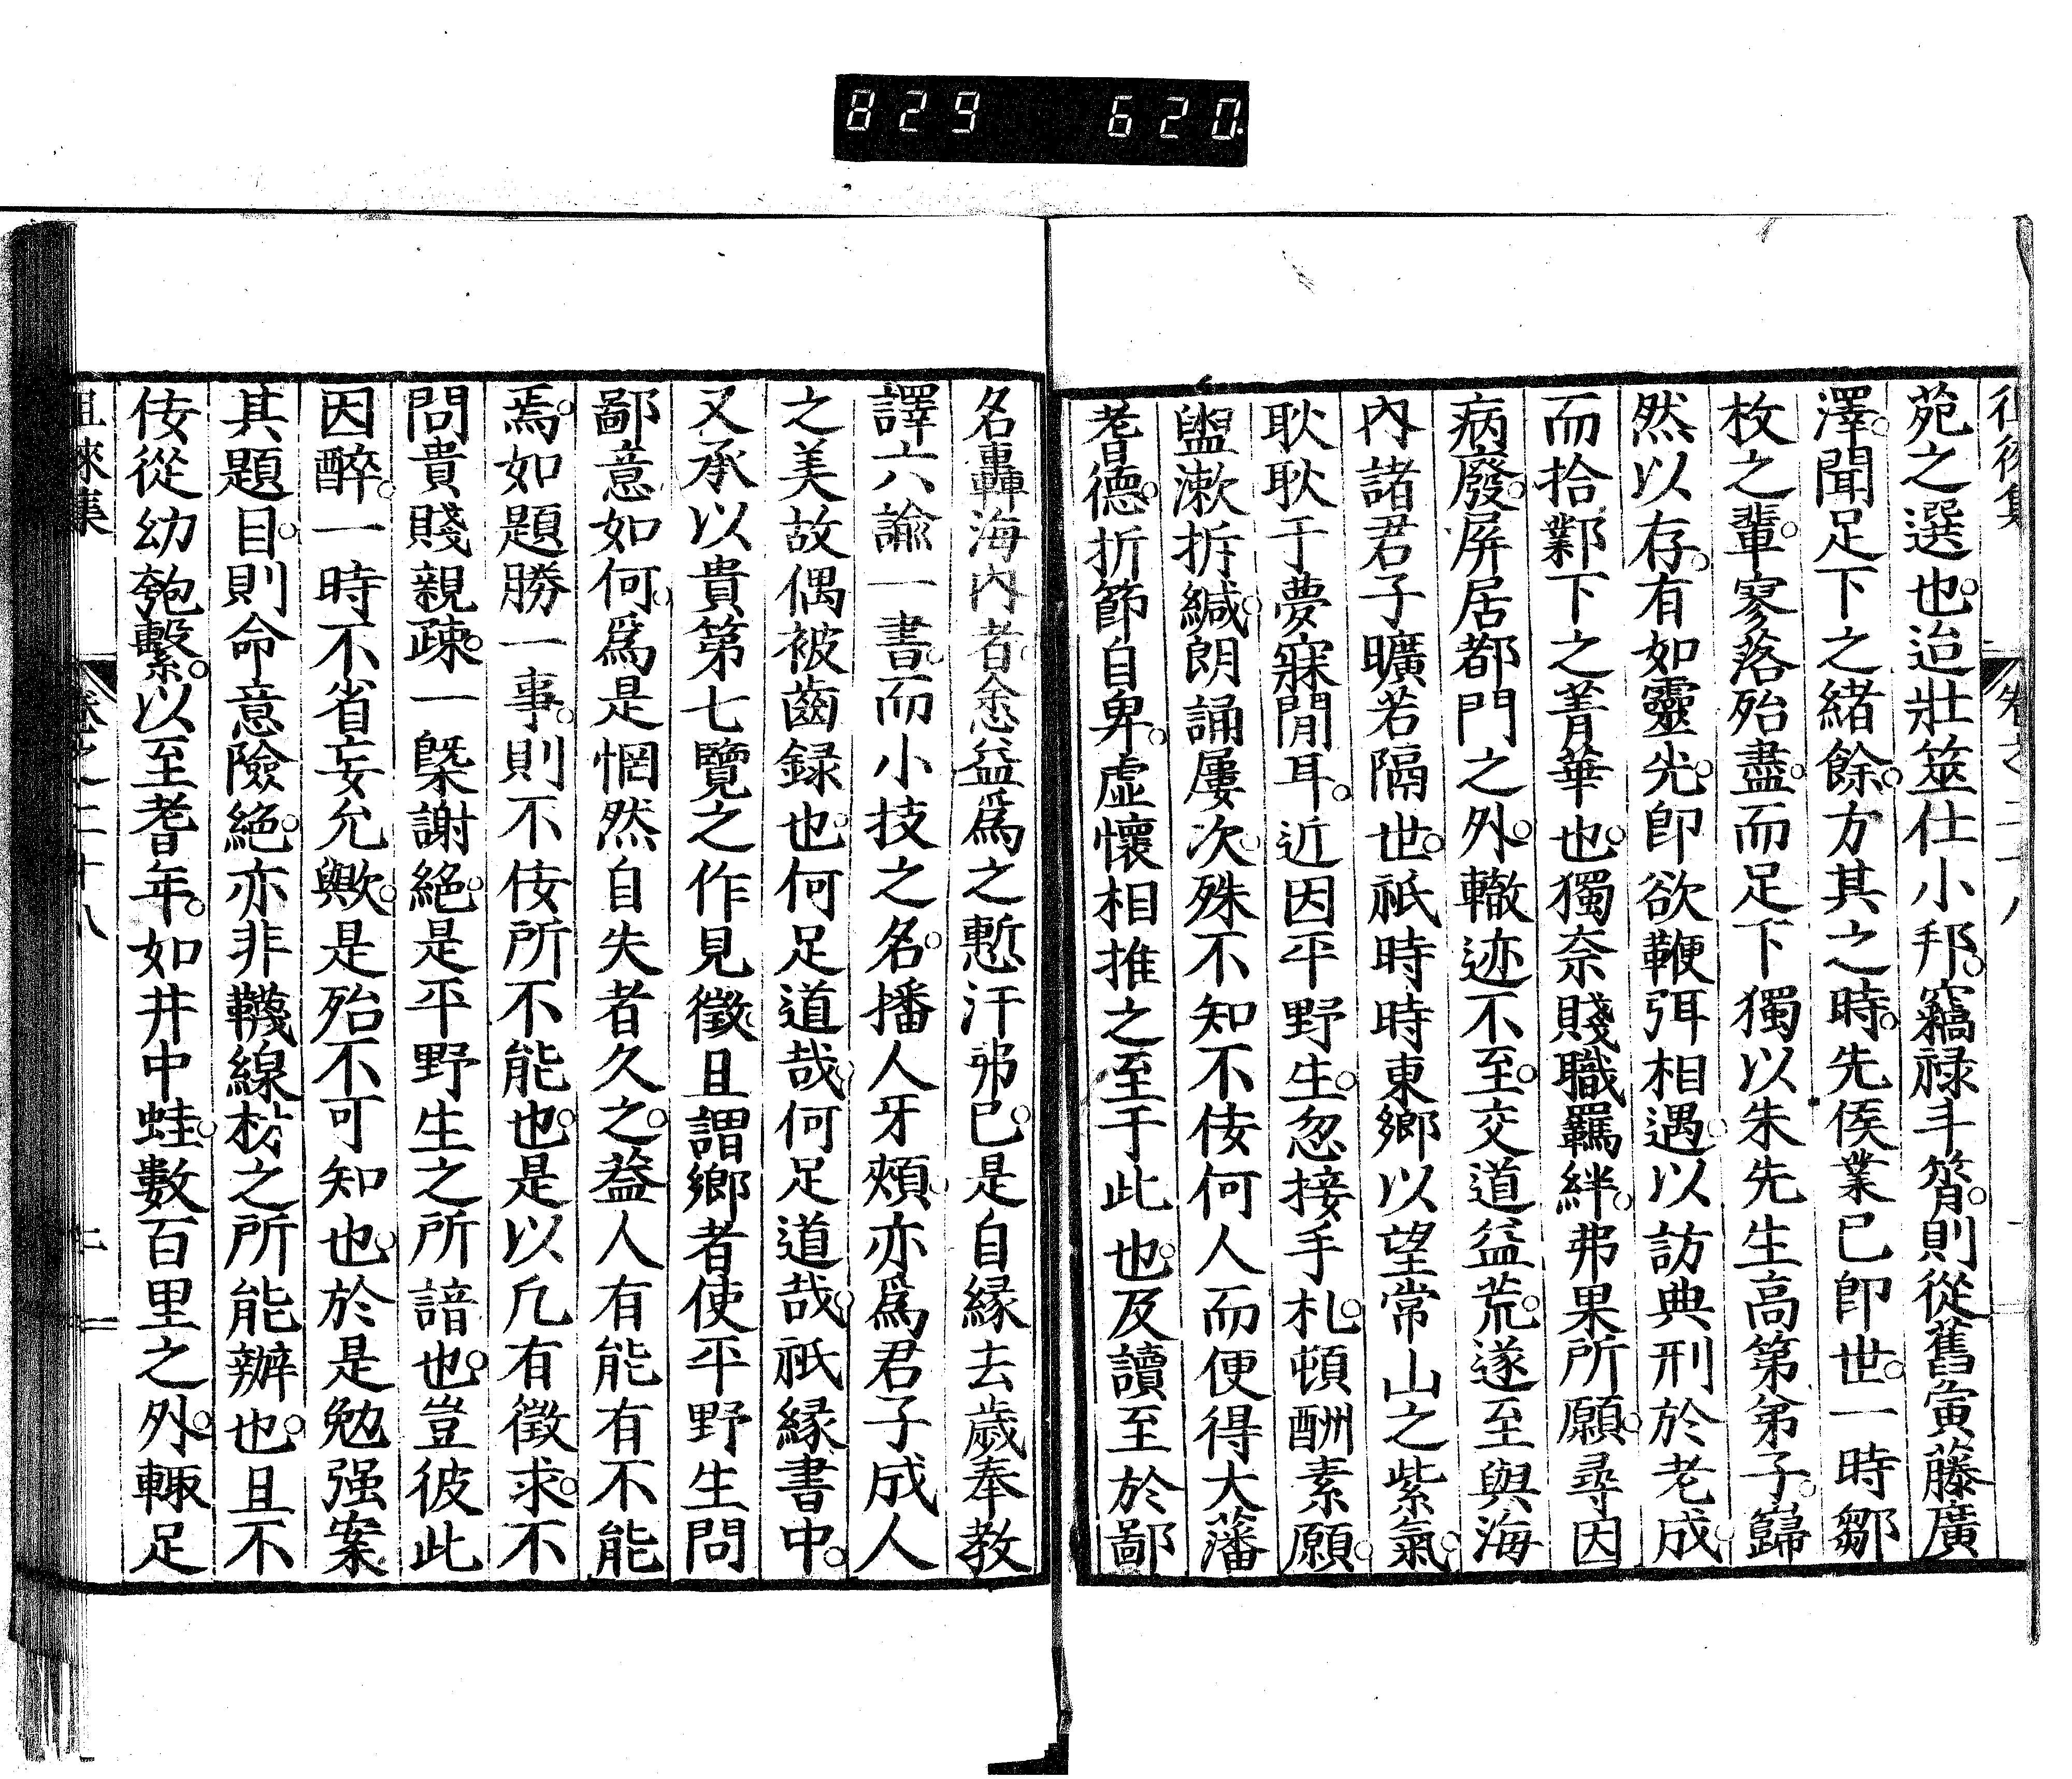 829 620.
苑之選也。迨壯筮仕小邦。竊祿斗筲。則從舊寅藤廣
澤。聞足下之緒餘。方其之時。先侯業已卽世。一時鄒
枚之輩。寥落殆盡。而足下獨以朱先生高第弟子。巋
然以存。有如靈光。卽欲鞭弭相遇。以訪典刑於老成。
而拾鄴下之菁華也。獨奈賤職羈絆。弗果所願。尋因
病廢。屏居都門之外。轍迹不至。交道益荒。遂至與海
內諸君子曠若隔世。祇時時東鄉以望常山之紫氣。
耿耿于夢寐閒耳。近因平野生。忽接手札。頓酬素願。
盥漱拆緘。朗誦屢次。殊不知不佞何人。而便得大藩
耆德。折節自卑。虛懷相推之至于此也。及讀至於鄙
名轟海內者。悆益爲之慙汗弗已。是自緣去歲奉教
譯六諭一書。而小技之名。播人牙頰。亦爲君子成人
之美故。偶被齒録也。何足道哉。何足道哉。祇緣書中。
又承以貴第七覽之作見徵。且謂鄉者使平野生問
鄙意如何。爲是惘然自失者久之。葢人有能有不能
焉。如題勝一事。則不佞所不能也。是以凡有徵求。不
問貴賤親疎。一槩謝絕。是平野生之所諳也。豈彼此
因醉。一時不省妄允歟。是殆不可知也。於是勉强案
其題目。則命意險絕。亦非韈線材之所能辦也。且不
佞從幼匏繫。以至耆年。如井中蛙。數百里之外。輙足
徂徠集 卷之二十八